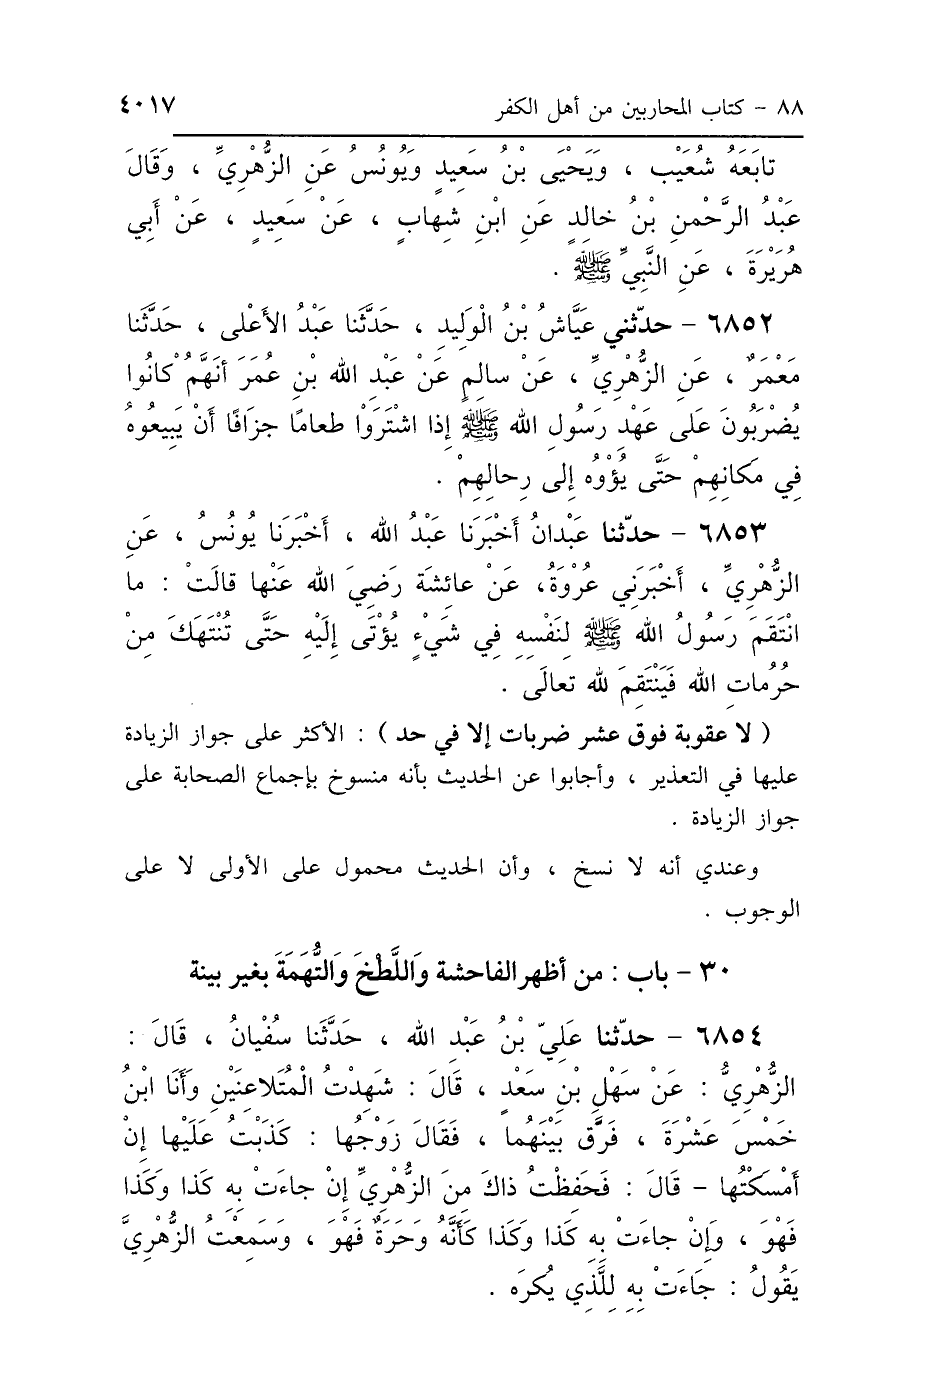 ٨٨ - كتاب المحاربين من أهل الكفر ٤٠١٧
تابَعَهُ شُعَيْب ، وَيَحْيَى بْنُ سَعِيدٍ وَيُونُسُ عَنِ الزُّهْرِيِّ ، وَقَالَ
عَبْدُ الرَّحْمنِ بْنُ خالِدٍ عَنِ ابْنِ شِهابٍ ، عَنْ سَعِيدٍ ، عَنْ أَبِي
هُرَيْرَةَ ، عَنِ النَّبِيِّ ﷺ .
٦٨٥٢ - حدّثني عَيَّاشُ بْنُ الْوَلِيدِ ، حَدَّثَنا عَبْدُ الأَعْلى ، حَدَّثَنا
مَعْمَرٌ ، عَنِ الزُّهْرِيِّ ، عَنْ سالِمٍ عَنْ عَبْدِ الله بْنِ عُمَرَ أنَهَّمْ كانُوا
يُضْرَبُونَ عَلى عَهْدِ رَسُولِ الله ﷺ إذا اشْتَرَوْا طعامًا جزَافًا أَنْ يَبِيعُوهُ
فِي مَكانِهِمْ حَتَّى يُؤْوُهُ إلى رِحالِهِمْ .
٦٨٥٣ - حدّثنا عَبْدانُ أَخْبَرَنا عَبْدُ الله ، أَخْبَرَنَا يُونُسُ ، عَنِ
الزُّهْرِيِّ ، أَخْبَرَنِي عُرْوَةُ، عَنْ عائشَة رَضِيَ الله عَنْها قالَتْ : ما
انْتَقَمَ رَسُولُ الله ﷺ لِنَفْسِهِ فِي شَيْءٍ يُؤْتَى إلَيْهِ حَتَّى تُنْتَهَكَ مِنْ
حُرُماتِ الله فَيَنْتَقِمَ لله تعالَى .
( لا عقوبة فوق عشر ضربات إلا في حد ) : الأكثر على جواز الزيادة
عليها في التعذير ، وأجابوا عن الحديث بأنه منسوخ بإجماع الصحابة على
جواز الزيادة .
وعندي أنه لا نسخ ، وأن الحديث محمول على الأولى لا على
الوجوب .
٣٠ - باب : من أظهر الفاحشة وَاللَّطْخَ وَالتُّهَمَةَ بغير بينة
٦٨٥٤ - حدّثنا عَلِيّ بْنُ عَبْدِ الله ، حَدَّثَنا سُفْيانُ ، قَالَ :
الزُّهْرِيُّ : عَنْ سَهْلِ بْنِ سَعْدٍ ، قَالَ : شَهِدْتُ الْمُتَلاعنَيْنِ وَأَنَا ابْنُ
خَمْسَ عَشْرَةَ ، فَرَّق بَيْنَهُما ، فَقَالَ زَوْجُها : كَذَبْتُ عَلَيْها إنْ
أمْسَكْتُها - قالَ : فَحَفِظْتُ ذاكَ مِنَ الزُّهْرِيِّ إنْ جاءَتْ بِهِ كَذا وكَذا
فَهْوَ ، وَإنْ جاءَتْ بِهِ كَذا وَكَذا كَأَنَّهُ وَحَرَةٌ فَهْوَ ، وَسَمِعْتُ الزُّهْرِيَّ
يَقُولُ : جَاءَتْ بِهِ لِلَّذِي يُكرَه .